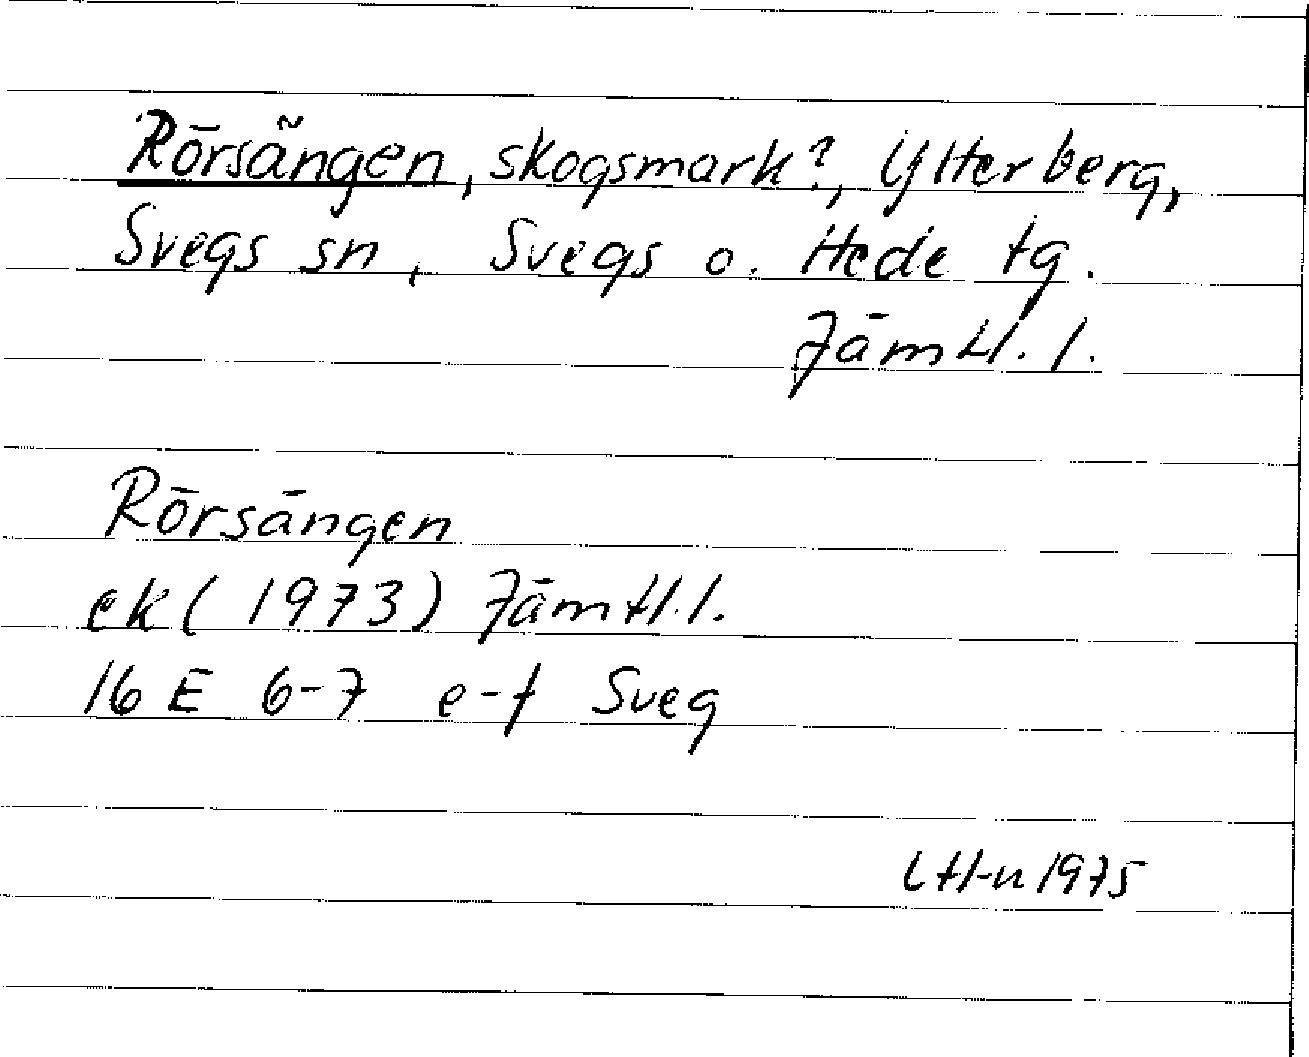 Rörsängen, skogsmark?, Ytterberg,
Svegs sn, Svegs o. Hede tg.
Jämtl. l.
Rörsängen
ek (1973) Jämtl. l.
16 E 6-7 e-f Sveg
LHn 1975